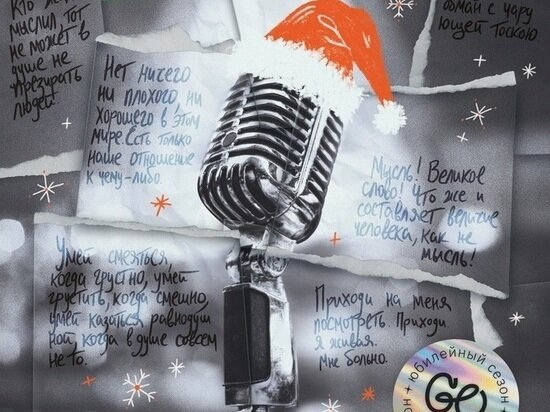 Кто же
мыслил, тот
не может в
душе не
презирать
людей!
обман с чару
ющей Тоскою
Нет ничего
ни плохого, ни
хорошего в этом
мире. Есть только
наше отношение
к чему-либо.
Мысль! Великое
слово! Что же и
составляет величие
человека, как не
мысль!
Умей смеяться,
когда грустно, умей
грустить, когда смешно,
умей казаться равнодуш
ной, когда в душе совсем
не то.
Приходи на меня
посмотреть. Приходи
я живая.
Мне больно.
он + юбилейный сезон